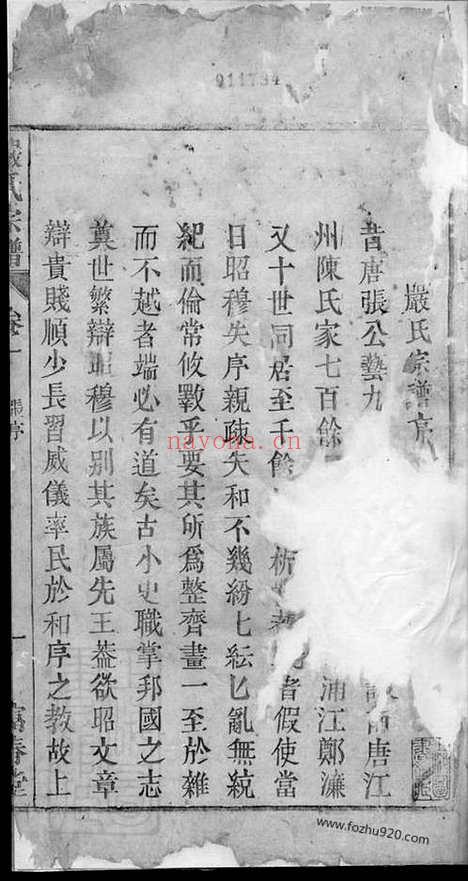 911734
嚴氏宗譜序
昔唐張公藝九 南唐江
州陳氏家七百餘 浦江鄭濂
又十世同居至千餘 析 者假使當
日昭穆失序親疎失和不幾紛匕紜匕亂無統
紀而倫常攸斁乎要其所爲整齊畫一至於雜
而不越者端必有道矣古小史職掌邦國之志
奠世繁辯昭穆以别其族屬先王葢欲昭文章
辯貴賤順少長習威儀率民於和序之教故上
嚴氏宗譜
卷一
序
一
富春堂
nayona.cn
www.fozhu920.com